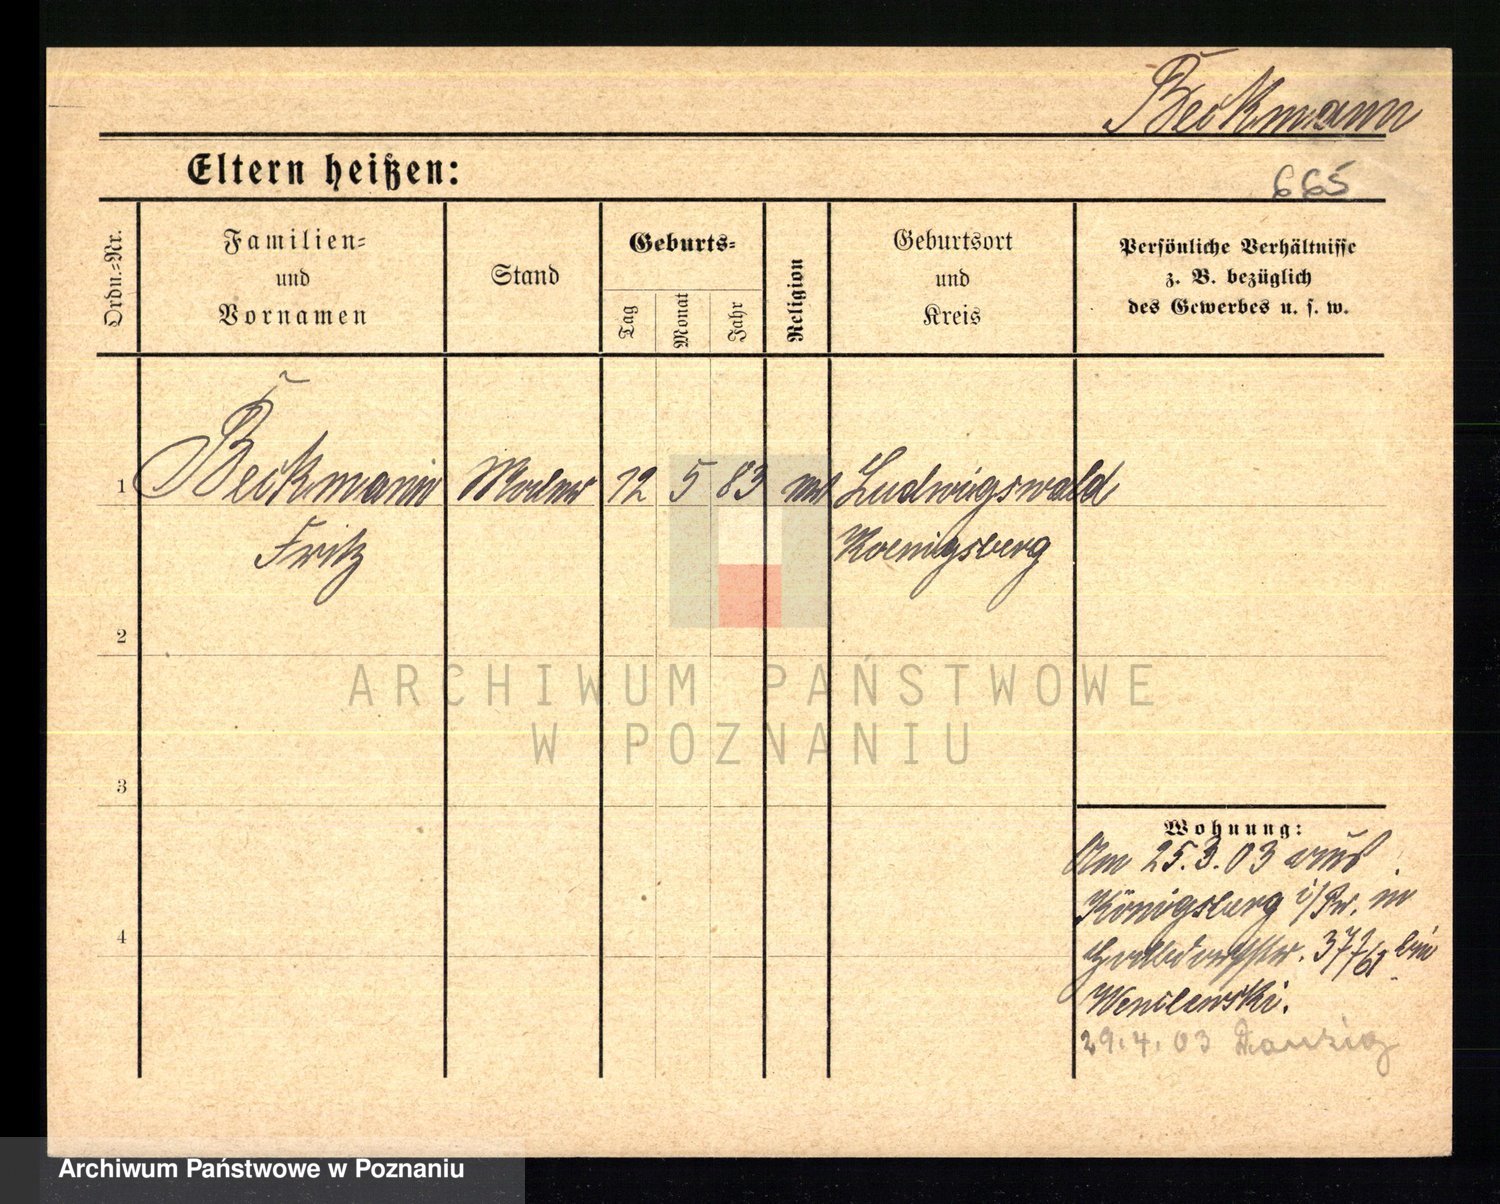 Beckmann
Eltern heißen:
665
Ordn.-Nr.
Familien-
und
Vornamen
Stand
Geburts-
Tag
Monat
Jahr
Religion
Geburtsort
und
Kreis
Persönliche Verhältnisse
z. B. bezüglich
des Gewerbes u. s. w.
1 Beckmann 12 5 83 Ludwigswald
Fritz Koenigsberg
2
ARCHIWUM PAŃSTWOWE
W POZNANIU
3
Wohnung:
Am 25.3.03 aus
Königsberg i/Pr. in
37
4
29.4.03 Danzig
Archiwum Państwowe w Poznaniu